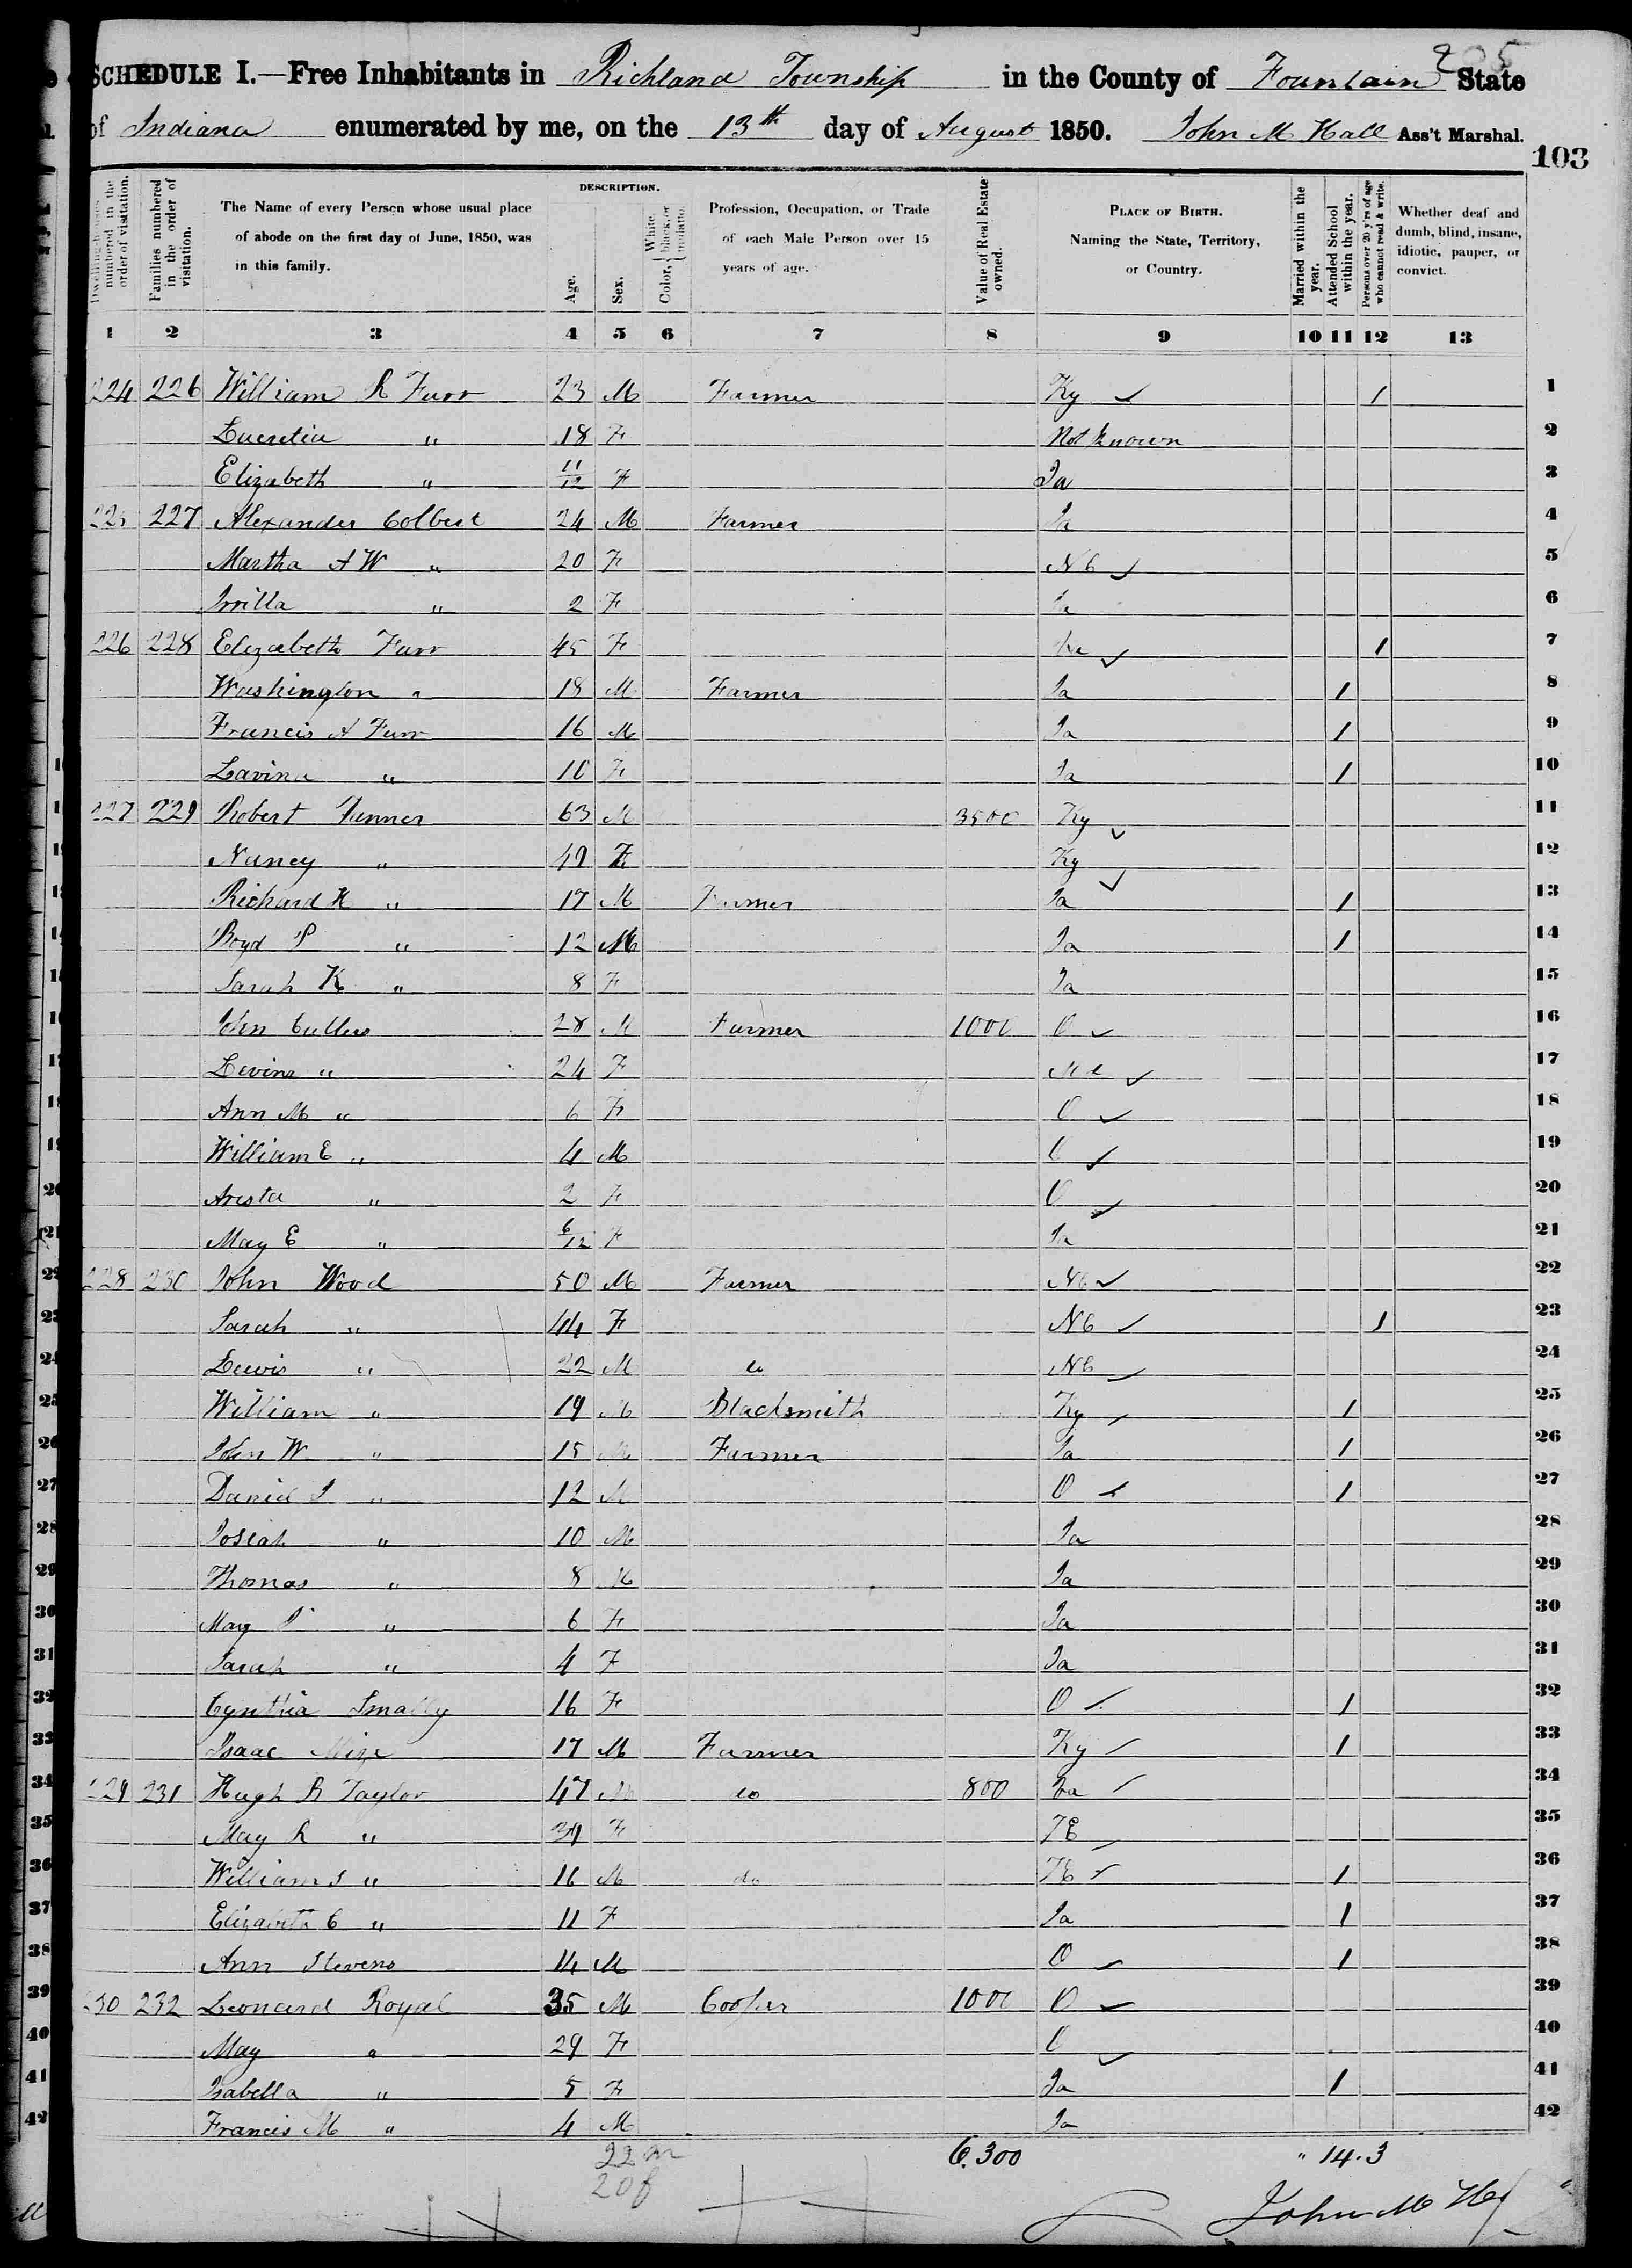 205
SCHEDULE I.—Free Inhabitants in Richland Township in the County of Fountain State
of Indiana enumerated by me, on the 13th day of August 1850. John M Hall Ass't Marshal.
103
Dwelling-houses numbered in the order of visitation.
Families numbered in the order of visitation.
The Name of every Person whose usual place of abode on the first day of June, 1850, was in this family.
DESCRIPTION.
Age.
Sex.
Color, { White, black, or mulatto.
Profession, Occupation, or Trade of each Male Person over 15 years of age.
Value of Real Estate owned.
PLACE OF BIRTH. Naming the State, Territory, or Country.
Married within the year.
Attended School within the year.
Persons over 20 y'rs of age who cannot read & write.
Whether deaf and dumb, blind, insane, idiotic, pauper, or convict.
1 2 3 4 5 6 7 8 9 10 11 12 13
224 226 William R Furr 23 M Farmer Ky ✓ / 1
Lucretia " 18 F Not known 2
Elizabeth " 11/12 F Ia 3
225 227 Alexander Colbert 24 M Farmer Ia 4
Martha A W " 20 F NC ✓ 5
" 2 F Ia 6
226 228 Elizabeth Furr 45 F Va ✓ 1 7
Washington " 18 M Farmer Ia 1 8
Francis A Furr 16 M Ia 1 9
Lavina " 10 F Ia 1 10
227 229 Robert 63 M 3500 Ky ✓ 11
Nancy " 49 F Ky ✓ 12
Richard K " 17 M Farmer Ia 1 13
Boyd P " 12 M Ia 1 14
Sarah K " 8 F Ia 15
John Cullers 28 M Farmer 1000 O ✓ 16
Levina " 24 F Md ✓ 17
Ann M " 6 F O ✓ 18
William E " 4 M O ✓ 19
Arista " 2 F O ✓ 20
May E " 6/12 F Ia 21
228 230 John Wood 50 M Farmer NC ✓ 22
Sarah " 44 F NC ✓ 1 23
Lewis " 22 M do NC ✓ 24
William " 19 M Blacksmith Ky ✓ 1 25
John W " 15 M Farmer Ia 1 26
Daniel J " 12 M O ✓ 1 27
Josiah " 10 M Ia 28
Thomas " 8 M Ia 29
May " 6 F Ia 30
Sarah " 4 F Ia 31
Cynthia Smally 16 F O ✓ 1 32
Isaac Mize 17 M Farmer Ky ✓ 1 33
229 231 Hugh B Taylor 47 M do 800 Va ✓ 34
May R " 39 F TE ✓ 35
William S " 16 M do TE ✓ 1 36
Elizabeth C " 11 F Ia 1 37
Ann Stevens 14 M O ✓ 1 38
230 232 Leonard Royal 35 M Cooper 1000 O ✓ 39
May " 29 F O ✓ 40
Isabella " 5 F Ia 1 41
Francis M " 4 M Ia 42
22 m
20 f
6.300
" 14.3
John M